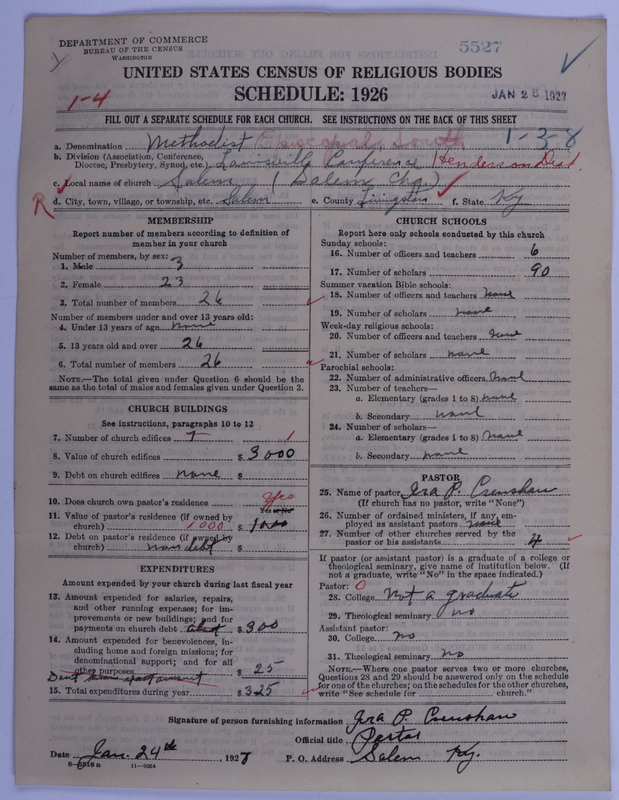 DEPARTMENT OF COMMERCE
BUREAU OF THE CENSUS
WASHINGTON
5527
UNITED STATES CENSUS OF RELIGIOUS BODIES
SCHEDULE: 1926
JAN 26 1927
1-4
FILL OUT A SEPARATE SCHEDULE FOR EACH CHURCH. SEE INSTRUCTIONS ON THE BACK OF THIS SHEET
1-3-8
a. Denomination Methodist Episcopal South
b. Division (Association, Conference, Diocese, Presbytery, Synod, etc.) Louisville Conference Henderson Dist
c. Local name of church Salem (Salem Chg)
R
d. City, town, village, or township, etc. Salem e. County Livingston f. State Ky
MEMBERSHIP
Report number of members according to definition of
member in your church
Number of members, by sex:
1. Male 3
2. Female 23
3. Total number of members 26
Number of members under and over 13 years old:
4. Under 13 years of age none
5. 13 years old and over 26
6. Total number of members 26
NOTE.—The total given under Question 6 should be the
same as the total of males and females given under Question 3.
CHURCH BUILDINGS
See instructions, paragraphs 10 to 12
7. Number of church edifices 1 1
8. Value of church edifices $ 3000
9. Debt on church edifices none $
10. Does church own pastor's residence Yes
11. Value of pastor's residence (if owned by
church) 1000 $ 1000
12. Debt on pastor's residence (if owned by
church) non debt $
EXPENDITURES
Amount expended by your church during last fiscal year
13. Amount expended for salaries, repairs,
and other running expenses; for im-
provements or new buildings; and for
payments on church debt about $ 300
14. Amount expended for benevolences, in-
cluding home and foreign missions; for
denominational support; and for all
other purposes $ 25
15. Total expenditures during year $ 325
CHURCH SCHOOLS
Report here only schools conducted by this church
Sunday schools:
16. Number of officers and teachers 6
17. Number of scholars 90
Summer vacation Bible schools:
18. Number of officers and teachers none
19. Number of scholars none
Week-day religious schools:
20. Number of officers and teachers none
21. Number of scholars none
Parochial schools:
22. Number of administrative officers none
23. Number of teachers—
a. Elementary (grades 1 to 8) none
b. Secondary none
24. Number of scholars—
a. Elementary (grades 1 to 8) none
b. Secondary none
PASTOR
25. Name of pastor Ira P. Crenshaw
(If church has no pastor, write "None")
26. Number of ordained ministers, if any, em-
ployed as assistant pastors none
27. Number of other churches served by the
pastor or his assistants 4
If pastor (or assistant pastor) is a graduate of a college or
theological seminary, give name of institution below. (If
not a graduate, write "No" in the space indicated.)
Pastor: O
28. College not a graduate
29. Theological seminary no
Assistant pastor:
30. College no
31. Theological seminary no
NOTE.—Where one pastor serves two or more churches,
Questions 28 and 29 should be answered only on the schedule
for one of the churches; on the schedules for the other churches,
write "See schedule for church."
Signature of person furnishing information Ira P. Crenshaw
Official title Pastor
Date Jan. 24th, 1927 P. O. Address Salem Ky.
11—9564